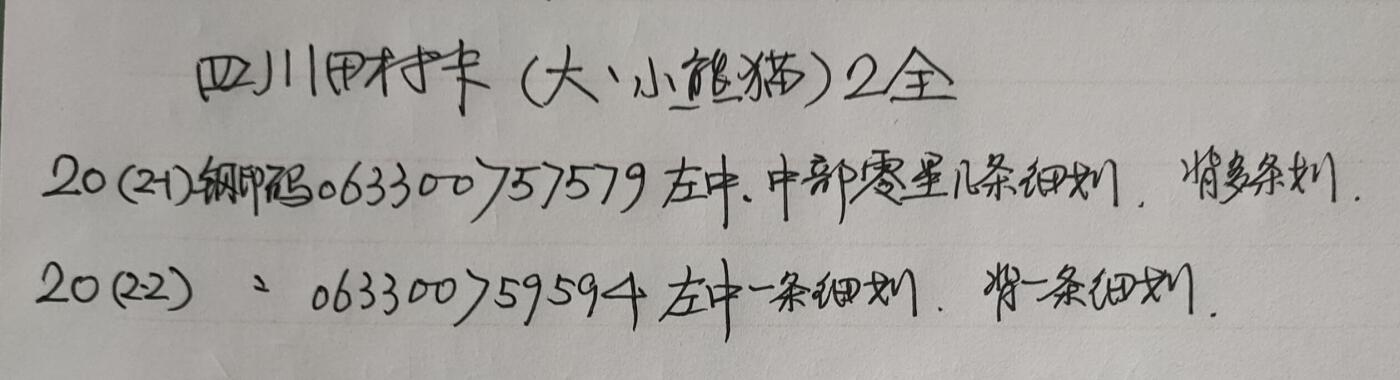 四川田村卡（大、小熊猫）2全
20(2-1)钢印码063300757579左中、中部零星几条细划．背多条划．
20(2-2) 〃 063300759594左中一条细划．背一条细划．